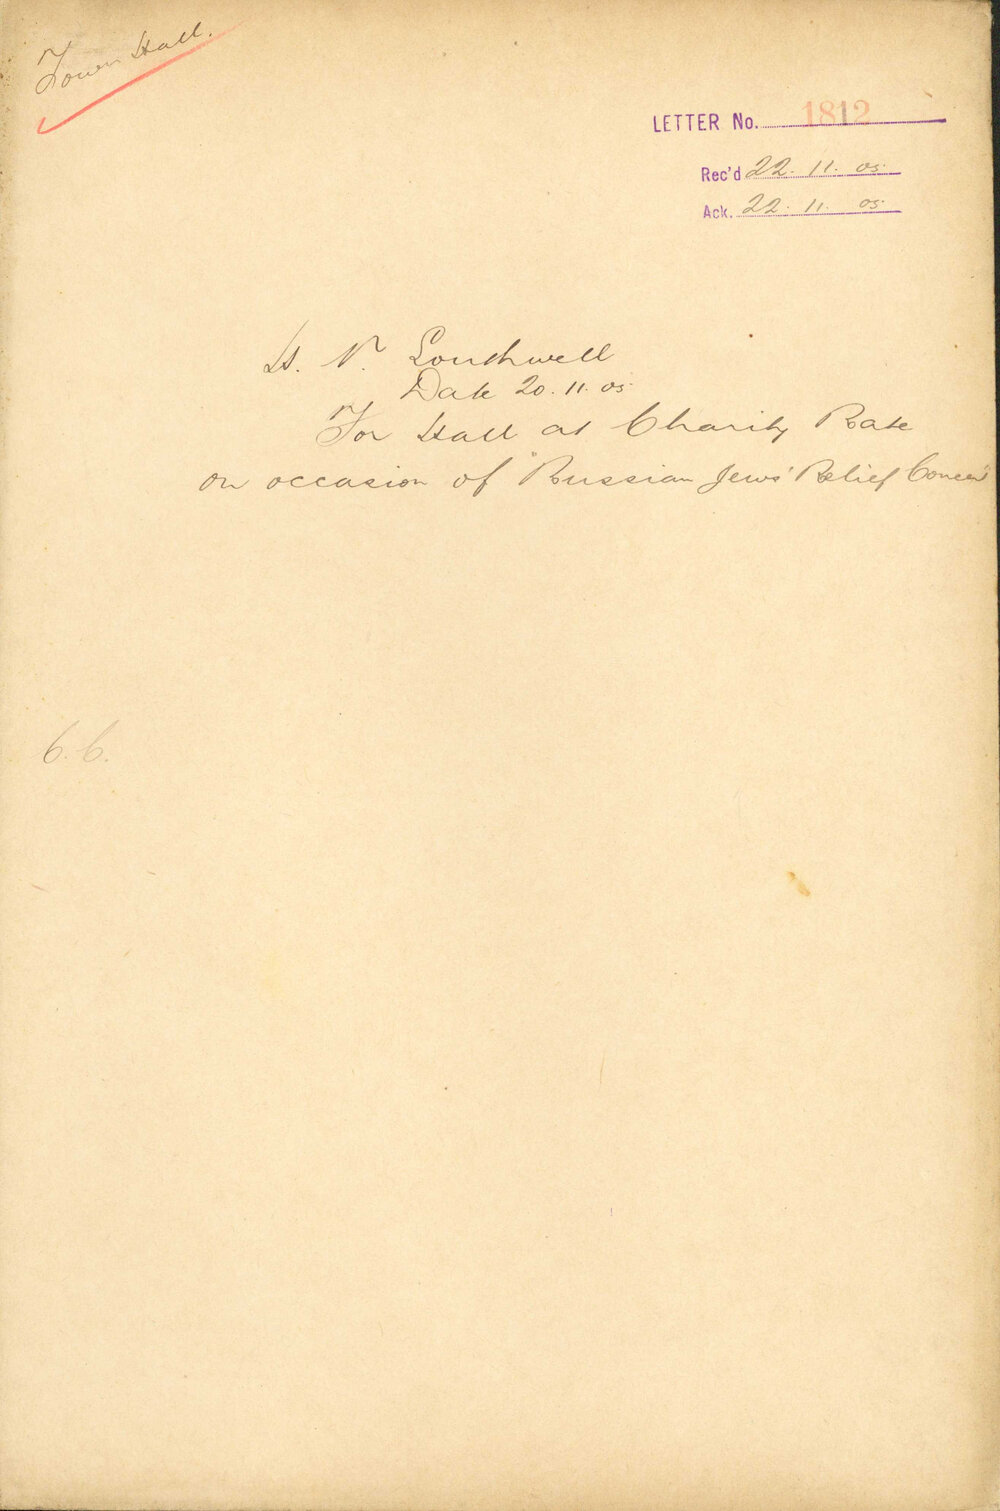 Town Hall.
LETTER No. 1812
Rec'd 22. 11. 05.
Ack. 22. 11. 05.
H. N. Southwell
Date 20. 11. 05.
For Hall at Charity Rate
on occasion of "Russian Jews' Relief Concert"